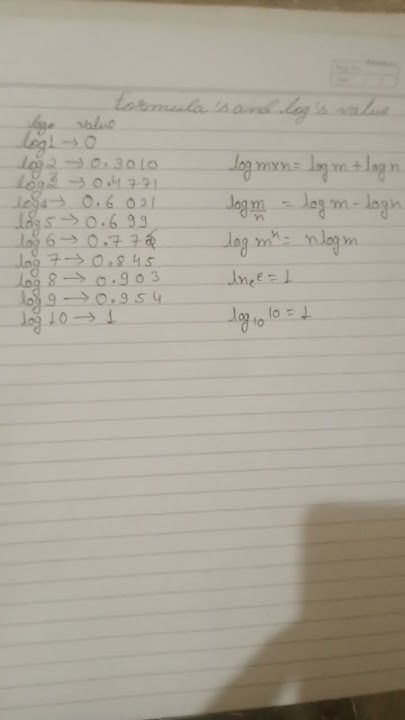 formula's and log's value
log value
log 1 → 0
log 2 → 0.3010
log 3 → 0.4771
log 4 → 0.6021
log 5 → 0.699
log 6 → 0.778
log 7 → 0.845
log 8 → 0.903
log 9 → 0.954
log 10 → 1
log m×n = log m + log n
log m/n = log m - log n
log mⁿ = n log m
lnₑ e = 1
log₁₀ 10 = 1